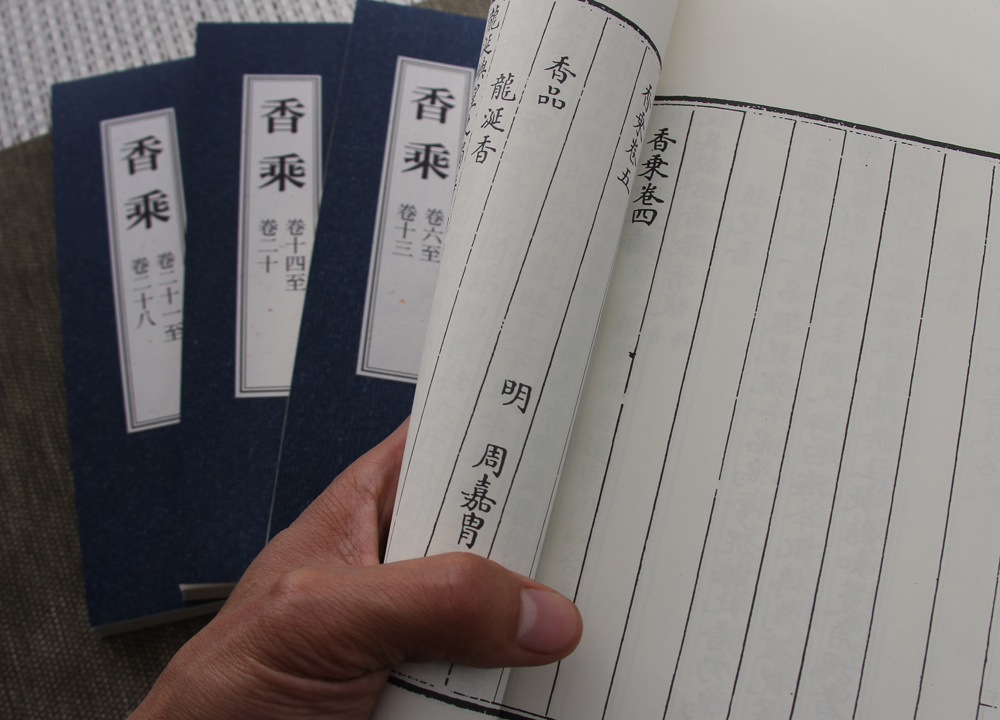 香乘
卷二十一至
卷二十八
香乘
卷十四至
卷二十
香乘
卷六至
卷十三
香乘卷四
香乘卷五
明 周嘉胄
香品
龍涎香